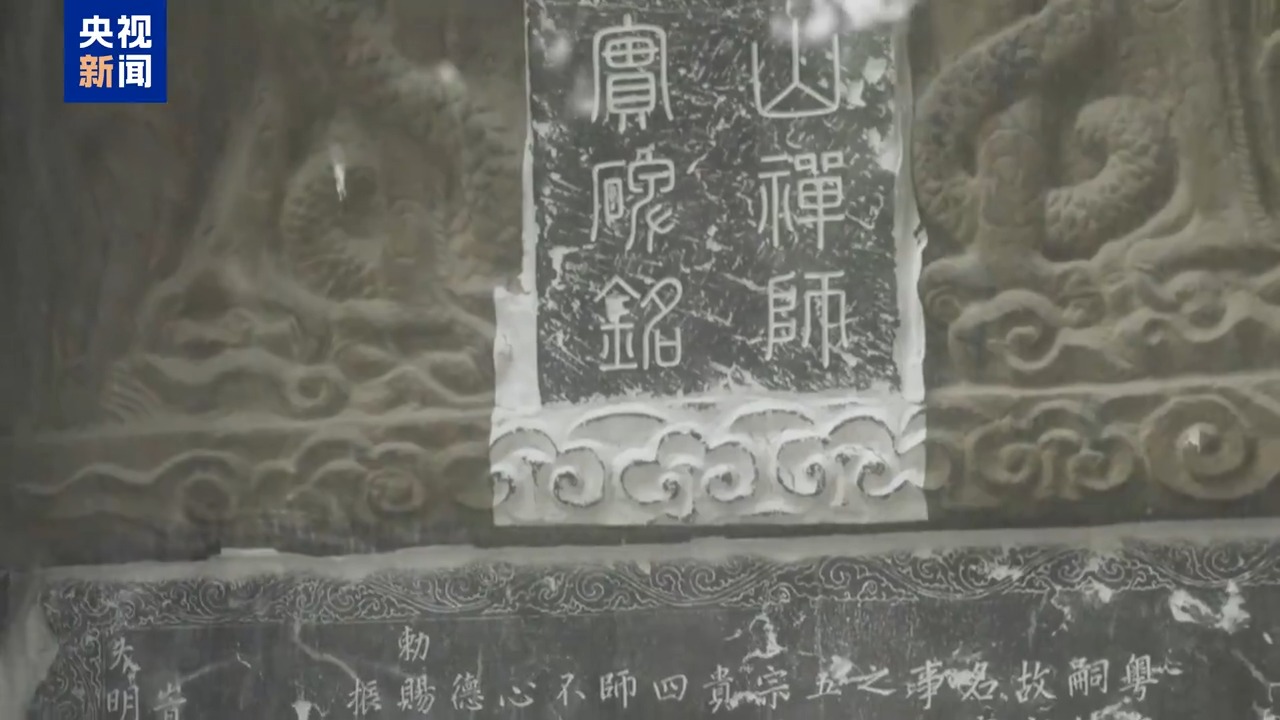 央视
新闻
山禪師
實碑銘
粤
嗣
故
名
事
之
五
宗
貴
四
師
不
心
德
勅賜
振
明